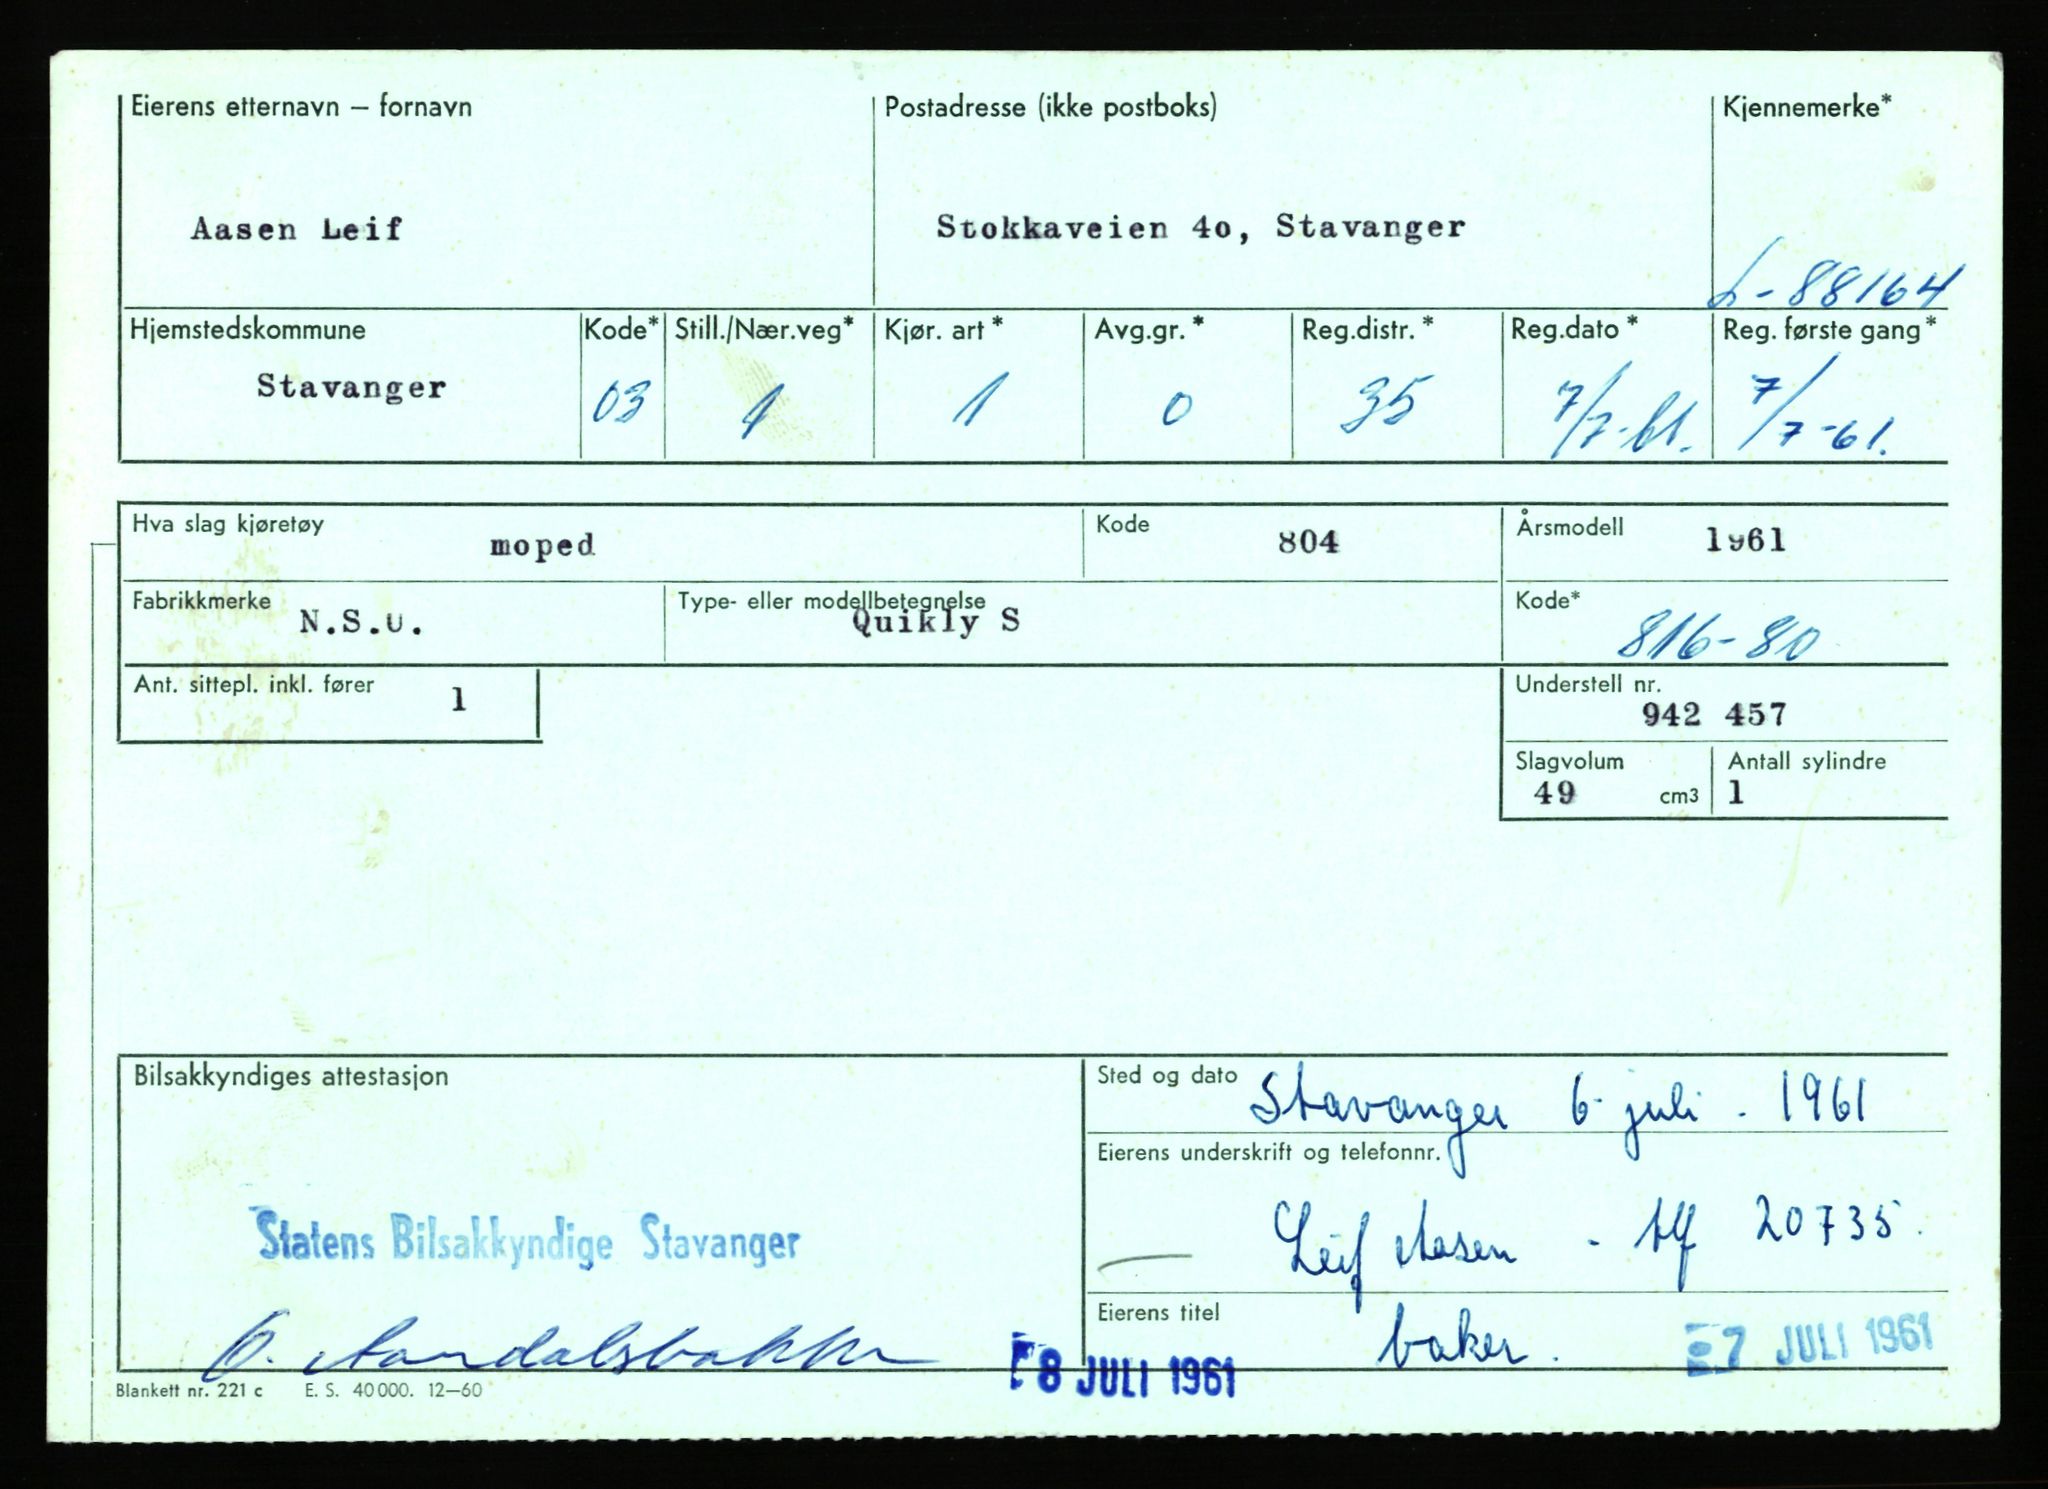 Eierens etternavn — fornavn Postadresse (ikke postboks) Kjennemerke*
Aasen Leif Stokkaveien 4o, Stavanger
L-88164
Hjemstedskommune Kode* Still./Nær.veg* Kjør. art* Avg.gr.* Reg.distr.* Reg.dato* Reg. første gang*
Stavanger 03 1 1 0 35 7/7-61. 7/7-61.
Hva slag kjøretøy moped Kode 804 Årsmodell 1961
Fabrikkmerke N.S.U. Type- eller modellbetegnelse Quikly S Kode* 816-80
Ant. sittepl. inkl. fører 1 Understell nr.
942 457
Slagvolum Antall sylindre
49 cm3 1
Bilsakkyndiges attestasjon Sted og dato Stavanger 6 juli - 1961
Eierens underskrift og telefonnr.
Statens Bilsakkyndige Stavanger Leif Aasen - tlf 20735.
Eierens titel baker. 7 JULI 1961
8 JULI 1961
Blankett nr. 221 c E. S. 40 000. 12—60